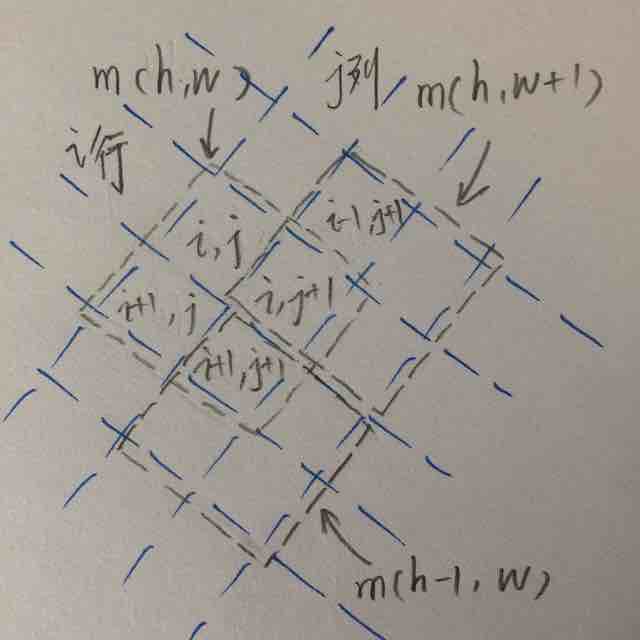 m(h,w)
j列
m(h,w+1)
i行
i-1,j+1
i,j
i,j+1
i+1,j
i+1,j+1
m(h-1,w)